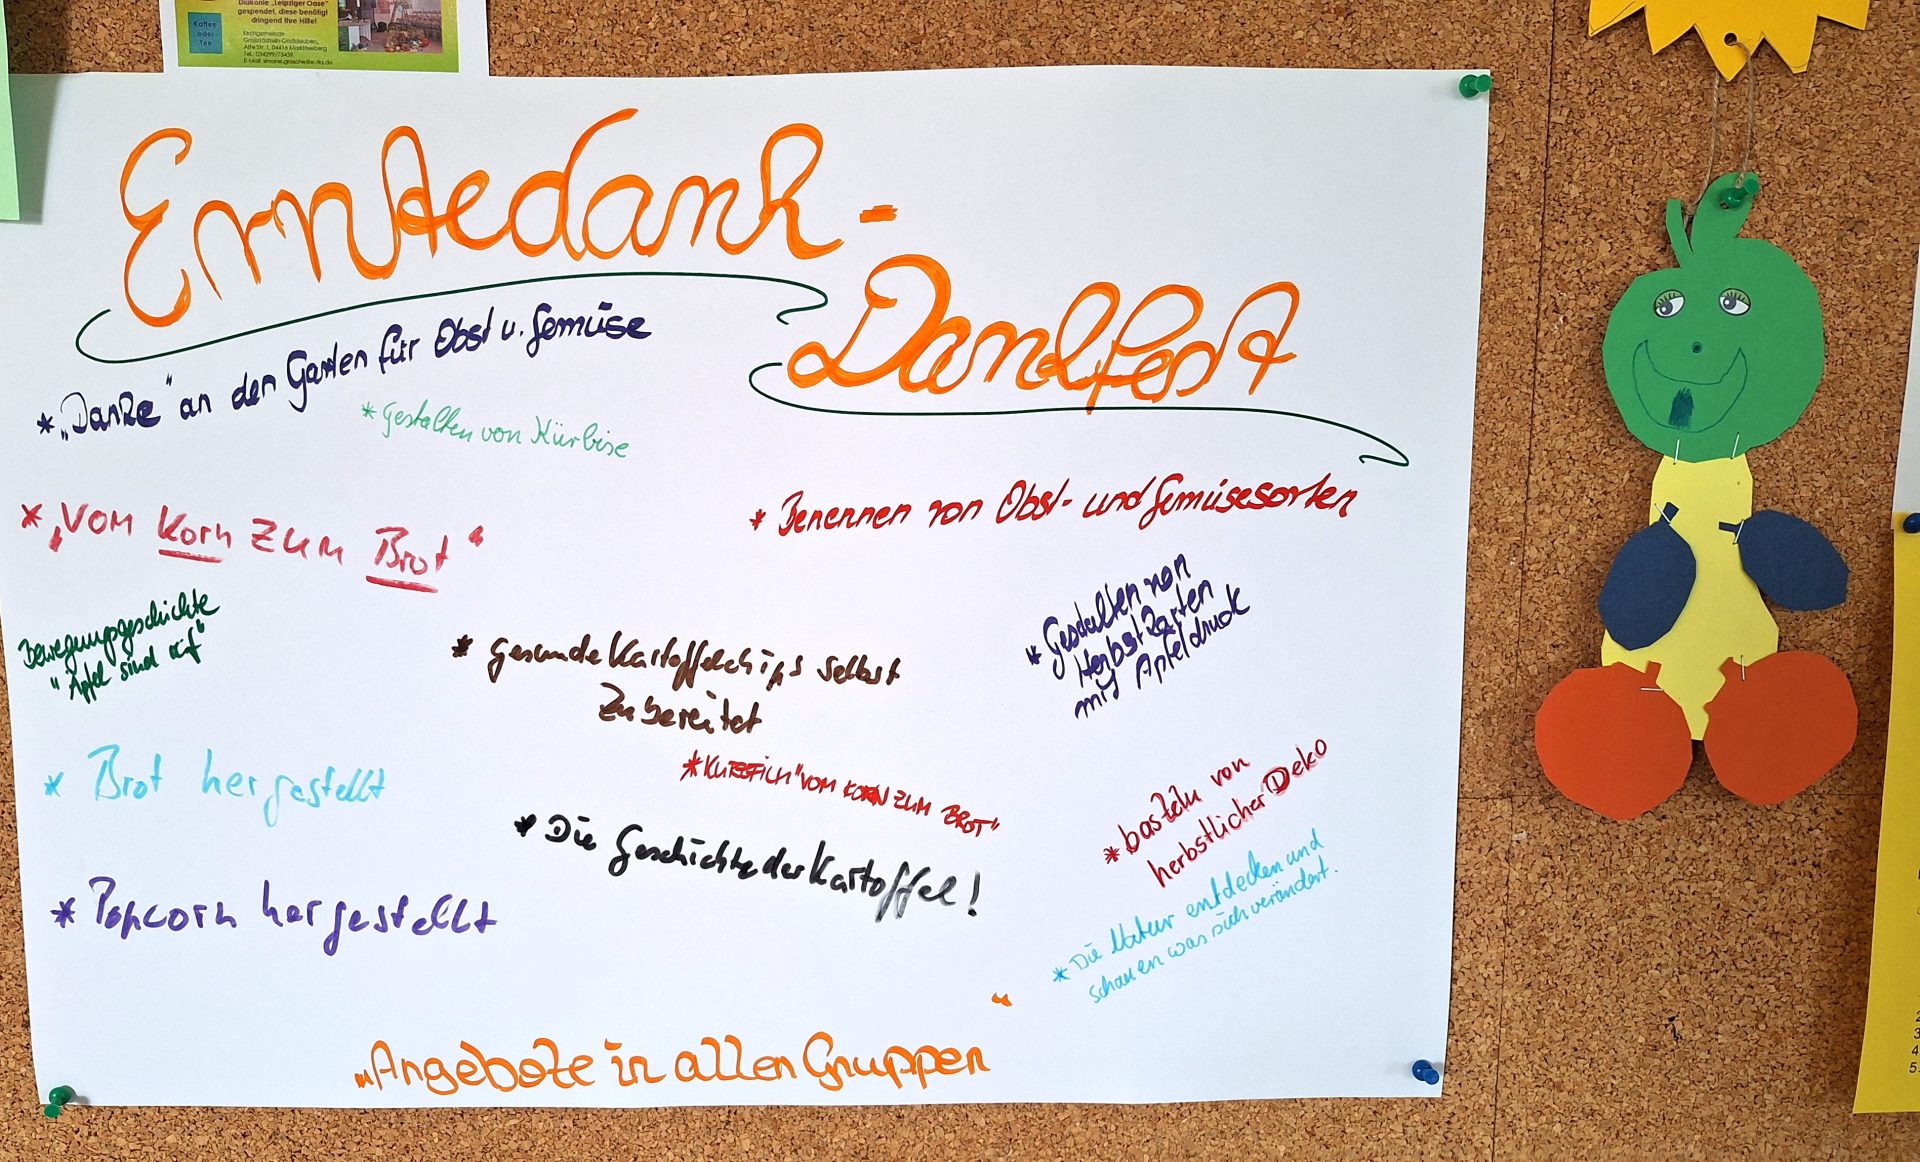 Diakonie „Leipziger Oase"
gespendet, diese benötigt
dringend Ihre Hilfe!
Kaffee
oder
Tee
Kirchgemeinde
Großstädteln-Großdeuben,
Alte Str. 1, 04416 Markkleeberg
Tel.: 034299/75459
Erntedank-
Dankfest
* „Danke" an den Garten für Obst u. Gemüse
* Gestalten von Kürbise
* „Vom Korn zum Brot"
* Benennen von Obst- und Gemüsesorten
Bewegungsgeschichte
"Äpfel sind reif"
* Gesunde Kartoffelchips selbst
Zubereitet
* Gestalten von
Herbstkarten
mit Apfeldruck
* Brot hergestellt
* KURZFILM "VOM KORN ZUM BROT"
* basteln von
herbstlicher Deko
* Die Geschichte der Kartoffel!
* Popcorn hergestellt
* Die Natur entdecken und
schauen was sich verändert.
„Angebote in allen Gruppen"
2
3
4
5.